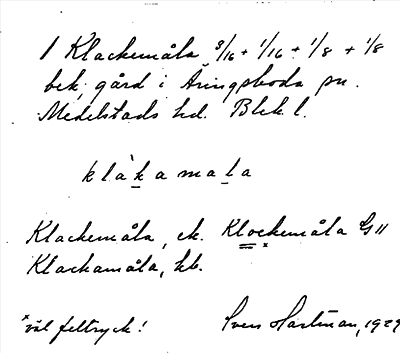 1 Klackemåla 3/16 + 1/16 + 1/8 + 1/8
bek. gård i Åringsboda sn.
Medelstads hd. Blek l.
klàkamala
Klackemåla, ek. Klockemåla G11
Klackamåla, kb.
x väl feltryck!
Sven Hartman, 1929